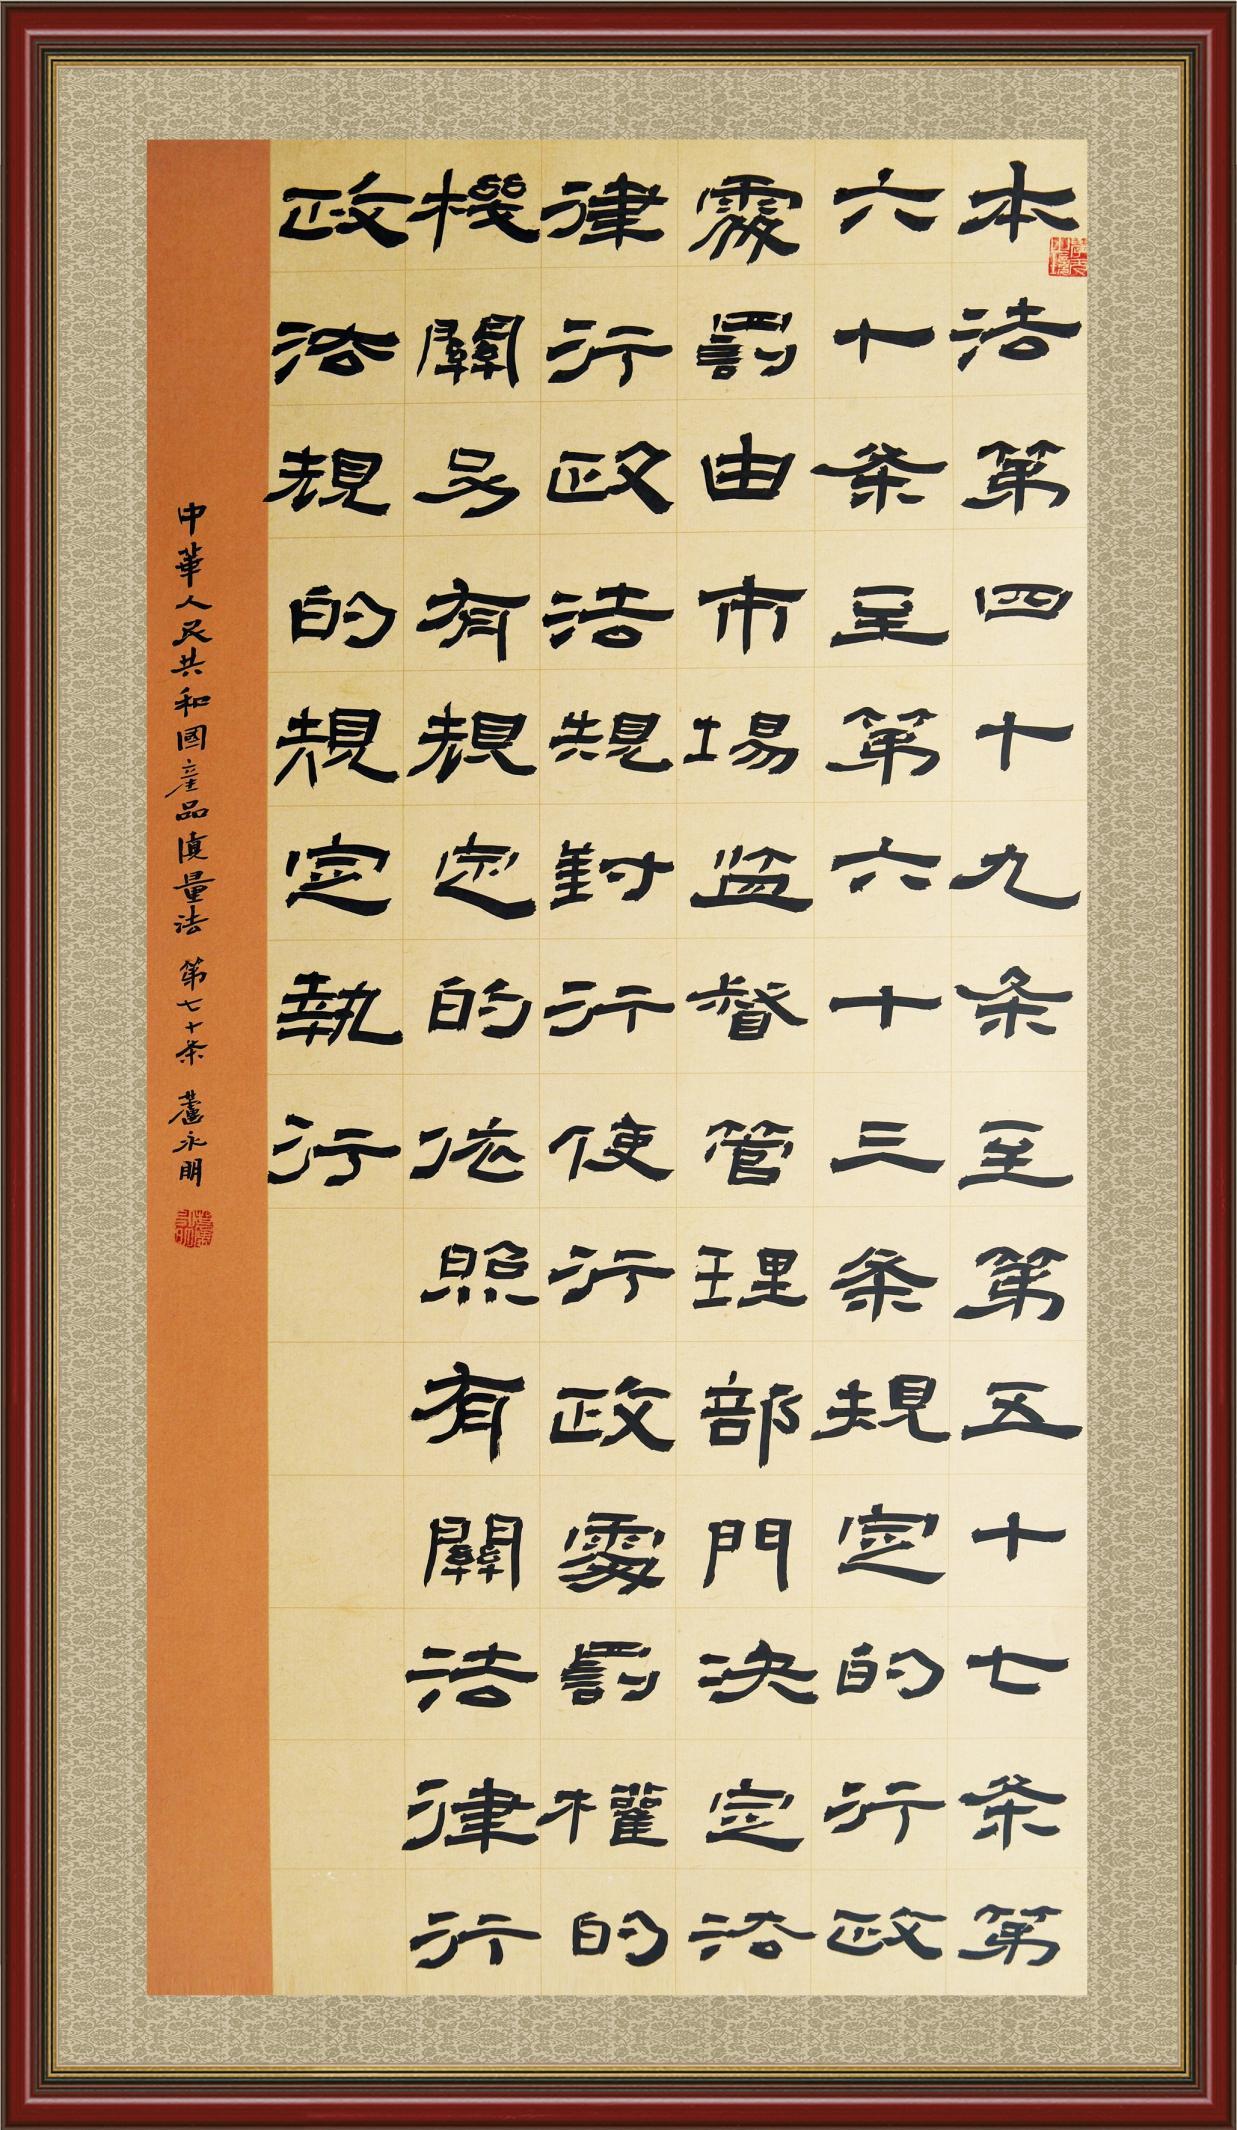 本法第四十九条至第五十七条第
六十条至第六十三条規定的行政
處罰由市場监督管理部門決定法
律行政法規對行使行政處罰權的
機關另有規定的依照有關法律行
政法規的規定執行
中華人民共和國產品質量法 第七十条 蘆永明